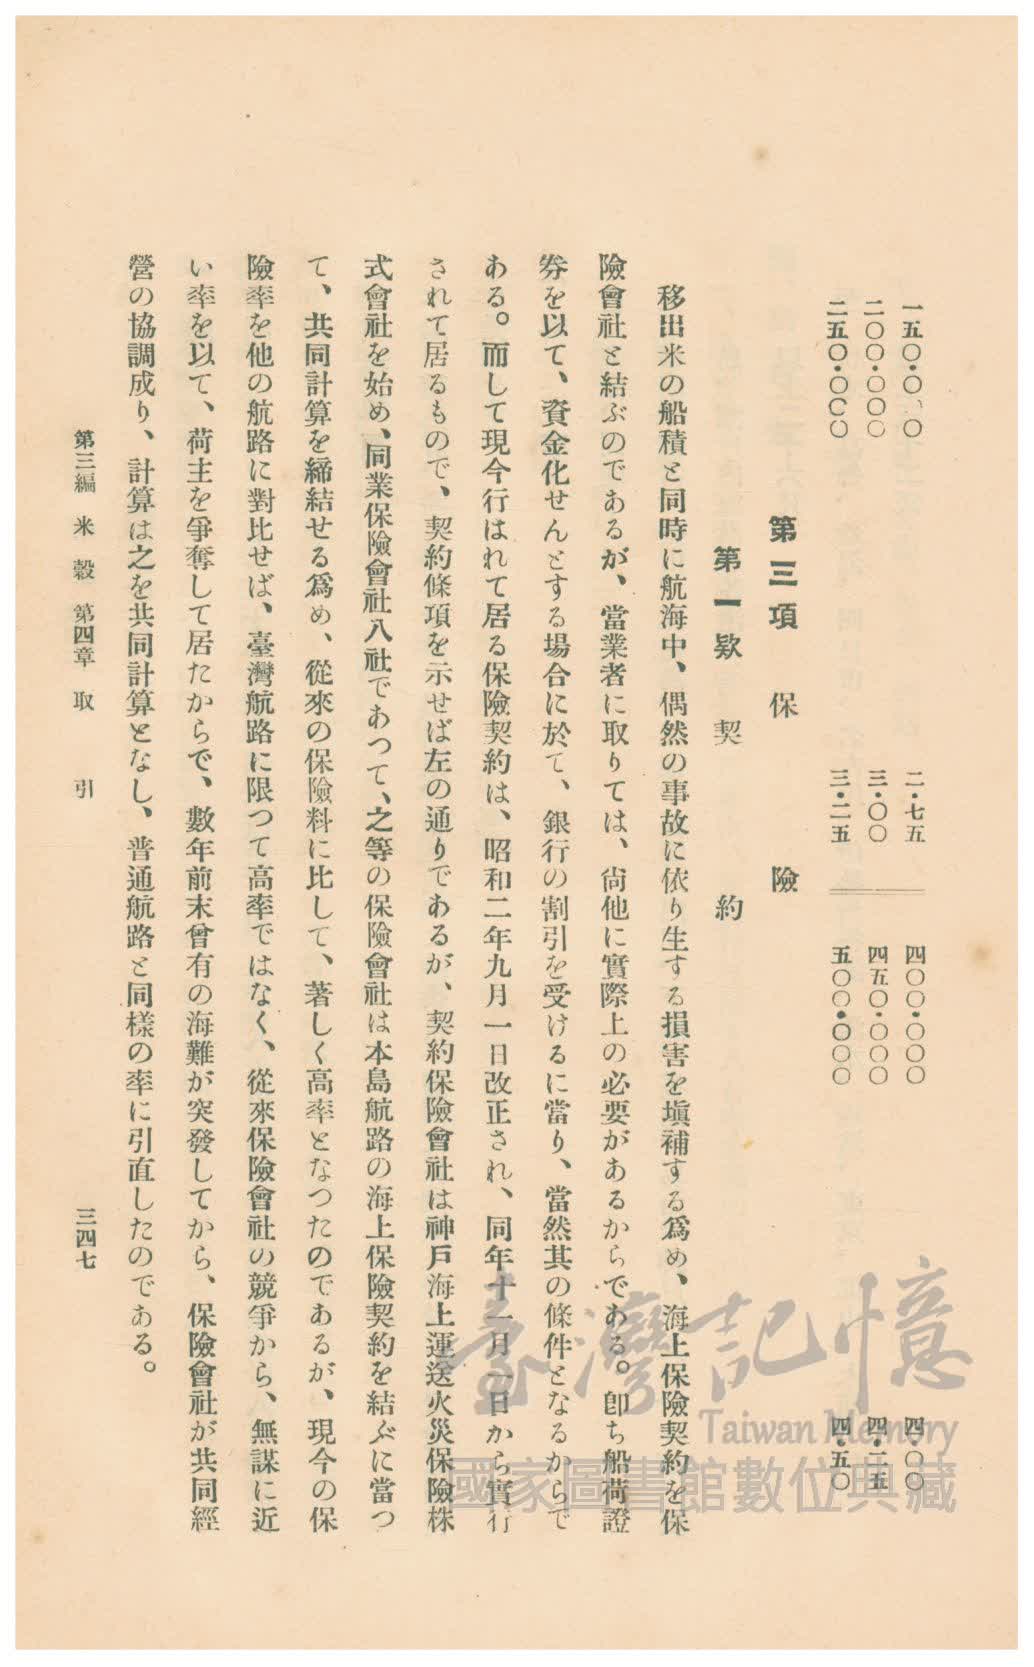 一五〇・〇〇〇　二・七五　四〇〇・〇〇〇　四・〇〇
二〇〇・〇〇〇　三・〇〇　四五〇・〇〇〇　四・二五
二五〇・〇〇〇　三・二五　五〇〇・〇〇〇　四・五〇
第三項　保險
第一欵　契約
移出米の船積と同時に航海中、偶然の事故に依り生する損害を塡補する爲め、海上保險契約を保
險會社と結ぶのであるが、當業者に取りては、尙他に實際上の必要があるからである。卽ち船荷證
券を以て、資金化せんとする場合に於て、銀行の割引を受けるに當り、當然其の條件となるからで
ある。而して現今行はれて居る保險契約は、昭和二年九月一日改正され、同年十一月一日から實行
されて居るもので、契約條項を示せば左の通りであるが、契約保險會社は神戶海上運送火災保險株
式會社を始め、同業保險會社八社であつて、之等の保險會社は本島航路の海上保險契約を結ぶに當つ
て、共同計算を締結せる爲め、從來の保險料に比して、著しく高率となつたのであるが、現今の保
險率を他の航路に對比せば、臺灣航路に限つて高率ではなく、從來保險會社の競爭から、無謀に近
い率を以て、荷主を爭奪して居たからで、數年前末曾有の海難が突發してから、保險會社が共同經
營の協調成り、計算は之を共同計算となし、普通航路と同樣の率に引直したのである。
第三編　米穀　第四章　取引　三四七
臺灣記憶
Taiwan Memory
國家圖書館數位典藏